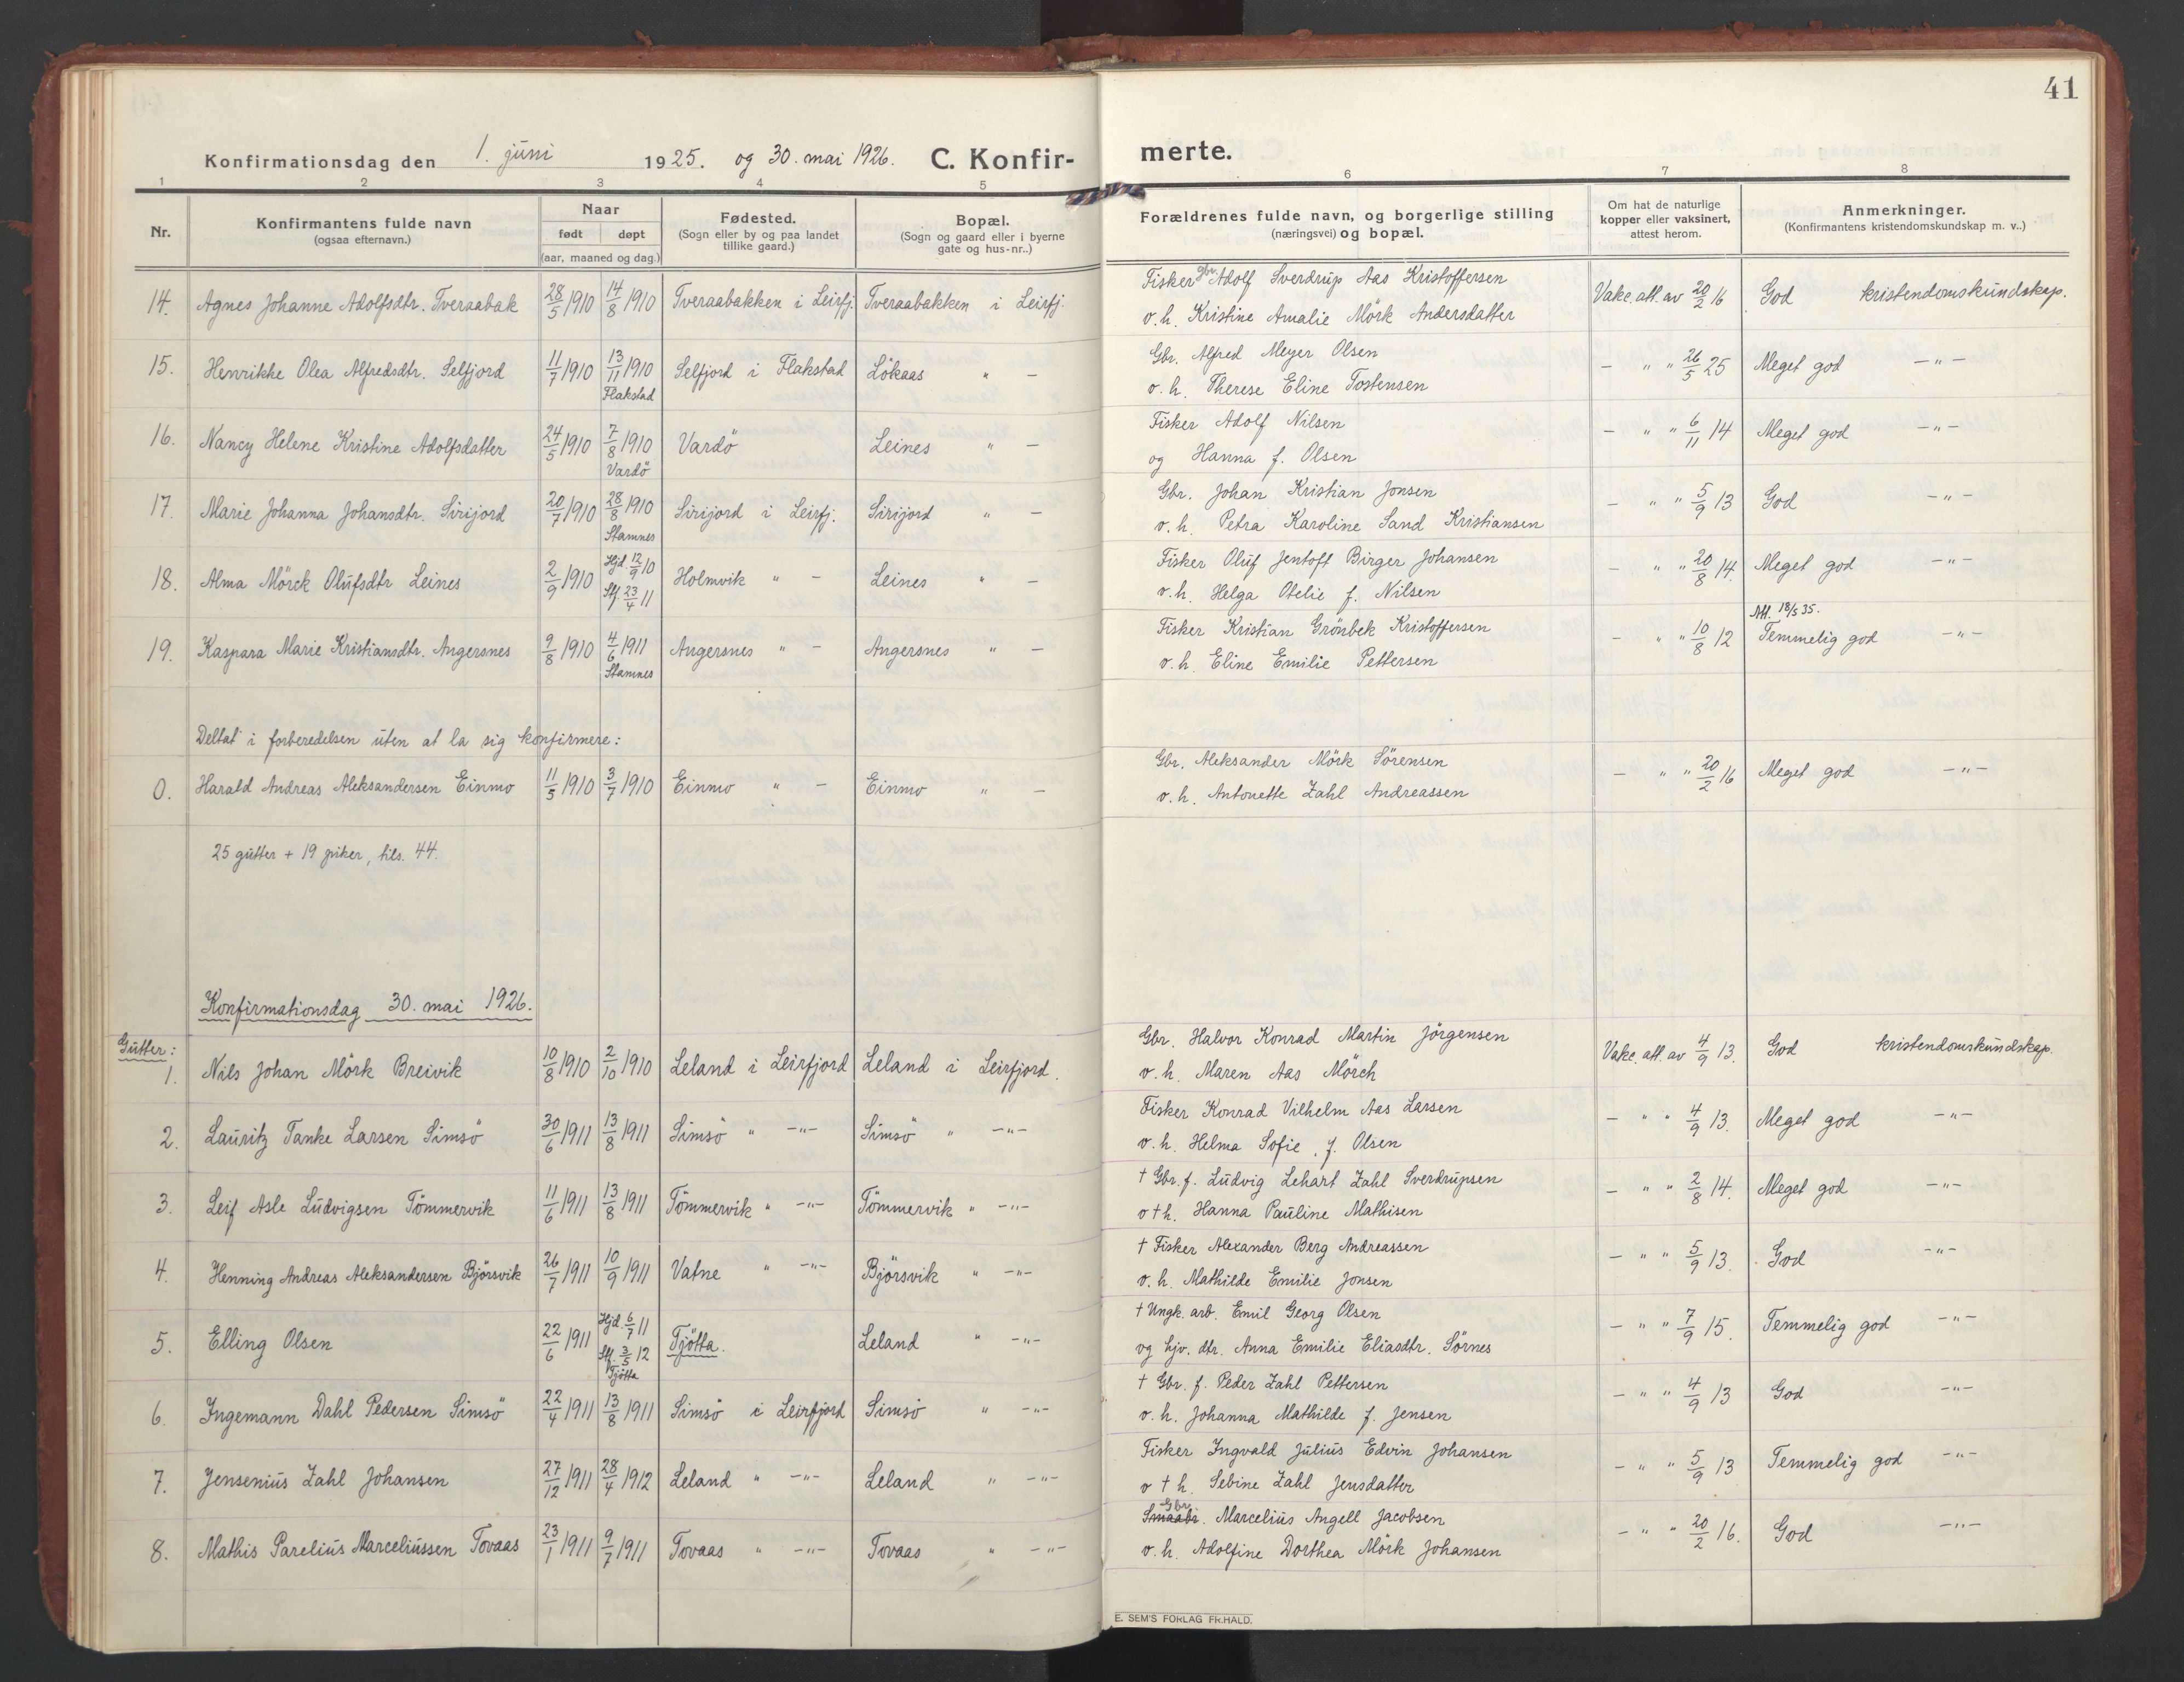 41
Konfirmationsdag den 1. juni 1925. og 30. mai 1926. C. Konfir-merte.
1 2 3 4 5 6 7 8
Nr.
Konfirmantens fulde navn
(ogsaa efternavn.)
Naar
født døpt
(aar, maaned og dag.)
Fødested.
(Sogn eller by og paa landet
tillike gaard.)
Bopæl.
(Sogn og gaard eller i byerne
gate og hus-nr..)
Forældrenes fulde navn, og borgerlige stilling
(næringsvei) og bopæl.
Om hat de naturlige
kopper eller vaksinert,
attest herom.
Anmerkninger.
(Konfirmantens kristendomskundskap m. v..)
14. Agnes Johanne Adolfsdtr. Tveraabak 28/5 1910 14/8 1910 Tveraabakken i Leirfj. Tveraabakken i Leirfj. Fisker gbr. Adolf Sverdrup Aas Kristoffersen Vakc. att. av 20/2 16 God kristendomskundskap.
o. h. Kristine Amalie Mörk Andersdatter
15. Henrikke Olea Alfredsdtr. Selfjord 11/7 1910 13/11 1910 Selfjord i Flakstad Lökaas " — Gbr. Alfred Meyer Olsen — " " 26/5 25 Meget god —"—
Flakstad o. h. Therese Eline Tostensen
16. Nancy Helene Kristine Adolfsdatter 24/5 1910 7/8 1910 Vardö Leines " — Fisker Adolf Nilsen — " " 6/11 14 Meget god —"—
Vardö og Hanna f. Olsen
17. Marie Johanna Johansdtr. Sirijord 20/7 1910 28/8 1910 Sirijord i Leirfj. Sirijord " — Gbr. Johan Kristian Jonsen — " " 5/9 13 God —"—
Stamnes o. h. Petra Karoline Sand Kristiansen
18. Alma Mörck Olufsdtr Leines 2/9 1910 Hjd. 12/9 10 Holmvik " — Leines " — Fisker Oluf Jentoft Birger Johansen — " " 20/8 14. Meget god —"—
Stf. 23/4 11 o. h. Helga Otelie f. Nilsen
Att. 18/5 35.
19. Kaspara Marie Kristiansdtr. Angersnes 9/8 1910 4/6 1911 Angersnes " — Angersnes " — Fisker Kristian Grönbek Kristoffersen — " " 10/8 12 Temmelig god —"—
Stamnes o. h. Eline Emilie Pettersen
Deltat i forberedelsen uten at la sig konfirmere:
0. Harald Andreas Aleksandersen Einmo 11/5 1910 3/7 1910 Einmo " — Einmo " — Gbr. Aleksander Mörk Sörensen — " " 20/2 16 Meget god —"—
o. h. Antonette Zahl Andreassen
25 gutter + 19 piker, tils. 44.
Konfirmationsdag 30. mai 1926.
Gutter:
1. Nils Johan Mörk Breivik 10/8 1910 2/10 1910 Leland i Leirfjord Leland i Leirfjord. Gbr. Halvor Konrad Martin Jörgensen Vakc. att. av 4/9 13. God kristendomskundskap.
o. h. Maren Aas Mörch
2. Lauritz Tanke Larsen Simsö 30/6 1911 13/8 1911 Simsö " —"— Simsö " —"— Fisker Konrad Vilhelm Aas Larsen — " " 4/9 13. Meget god —"—
o. h. Helma Sofie, f. Olsen
3. Leif Asle Ludvigsen Tömmervik 11/6 1911 13/8 1911 Tömmervik " —"— Tömmervik " —"— † Gbr. f. Ludvig Lehart Zahl Sverdrupsen — " " 2/8 14. Meget god —"—
o † h. Hanna Pauline Mathisen
4. Henning Andreas Aleksandersen Björsvik 26/7 1911 10/9 1911 Vatne " —"— Björsvik " —"— † Fisker Alexander Berg Andreassen — " " 5/9 13. God —"—
o. h. Mathilde Emilie Jonsen
5. Elling Olsen 22/6 1911 Hjd. 6/7 11 Tjötta. Leland " —"— † Ungk. arb. Emil Georg Olsen — " " 7/9 15. Temmelig god —"—
Stf. 3/5 12 Tjötta og hjv. dtr. Anna Emilie Eliasdtr. Sörnes
6. Ingemann Dahl Pedersen Simsö 22/4 1911 13/8 1911 Simsö i Leirfjord Simsö " —"— † Gbr. f. Peder Zahl Pettersen — " " 4/9 13 God —"—
o. h. Johanna Mathilde f. Jensen
7. Jensenius Zahl Johansen 27/12 1911 28/4 1912 Leland " —"— Leland " —"— Fisker Ingvald Julius Edvin Johansen — " " 5/9 13 Temmelig god —"—
o † h. Sebine Zahl Jensdatter
8. Mathis Parelius Marceliussen Tovaas 23/1 1911 9/7 1911 Tovaas " —"— Tovaas " —"— Smaabr. Gbr. Marcelius Angell Jacobsen — " " 20/2 16. God —"—
o. h. Adolfine Dorthea Mörk Johansen
E. SEM'S FORLAG FR.HALD.